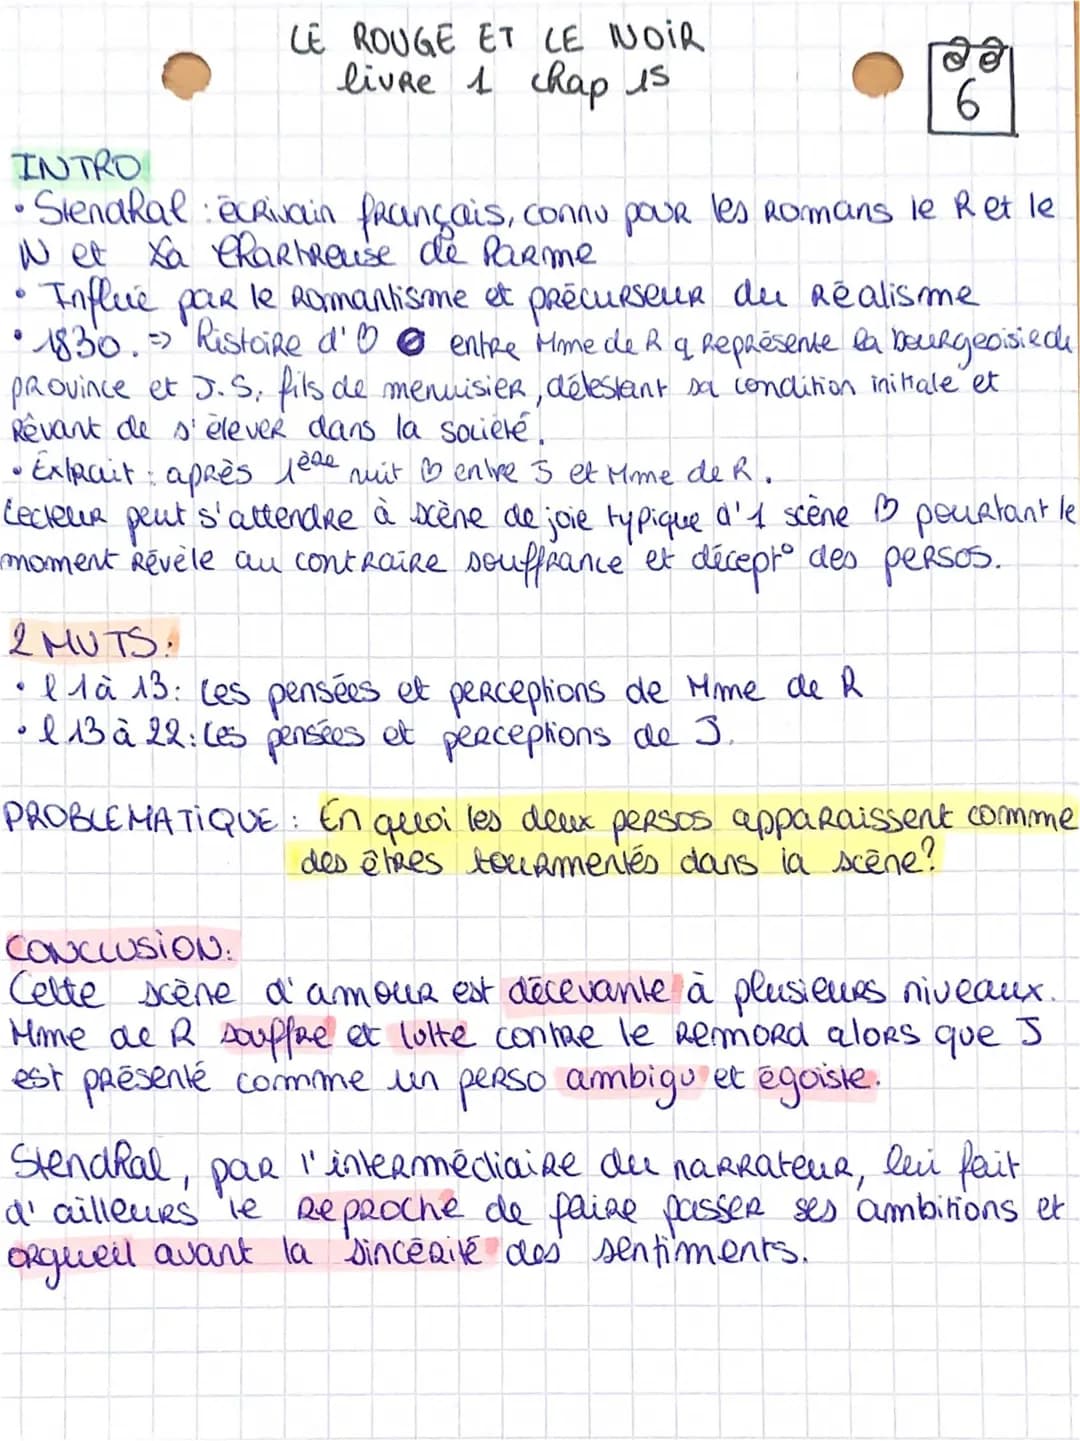 LE ROUGE ET LE NOIR
livre 1 chap 15
6
INTRO
• Stendhal : écrivain français, connu pour les romans le R et le
N et La Chartreuse de Parme
• Influé par le romantisme et précurseur du réalisme
• 1830. => histoire d'♡ entre Mme de R q représente la bourgeoisie de
province et J.S, fils de menuisier, détestant sa condition initiale et
rêvant de s'élever dans la société.
• Extrait : après 1ère nuit ♡ entre J et Mme de R.
Lecteur peut s'attendre à scène de joie typique d'1 scène ♡ pourtant le
moment révèle au contraire souffrance et décept° des persos.
2 MVTS:
• l 1 à 13: Les pensées et perceptions de Mme de R
• l 13 à 22: Les pensées et perceptions de J.
PROBLEMATIQUE : En quoi les deux persos apparaissent comme
des êtres tourmentés dans la scène?
CONCLUSION:
Cette scène d'amour est décevante à plusieurs niveaux.
Mme de R souffre et lutte contre le remord alors que J
est présenté comme un perso ambigu et égoiste.
Stendhal, par l'intermédiaire du narrateur, lui fait
d'ailleurs le reproche de faire passer ses ambitions et
orgueil avant la sincérité des sentiments.